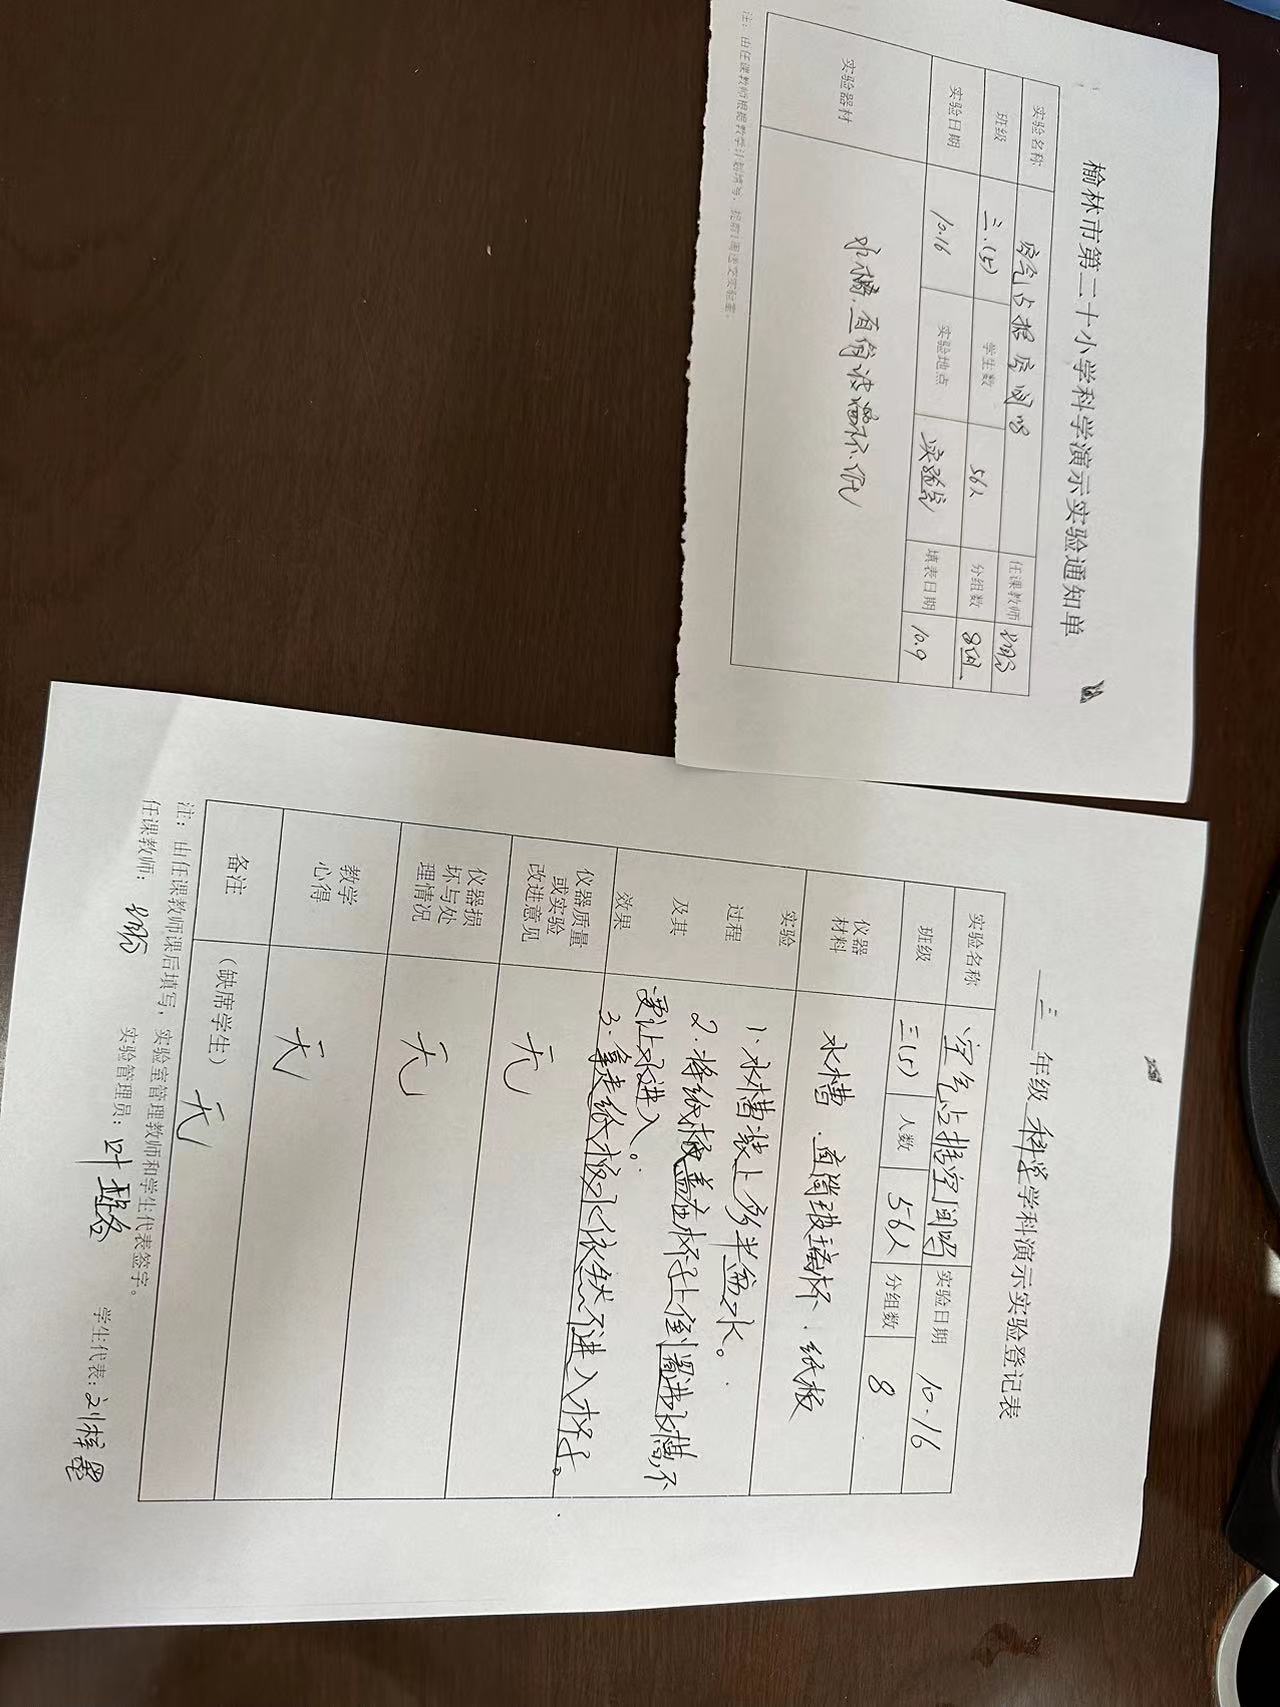 榆林市第二十小学科学演示实验通知单
实验名称 空气占据空间吗 任课教师
班级 三.(5) 学生数 56人 分组数 8组
实验日期 10.16 实验地点 实验室 填表日期 10.9
实验器材 水槽.直筒玻璃杯.纸
注：由任课教师根据教学计划填写，提前1周送交实验室。
三 年级 科学 学科演示实验登记表
实验名称 空气占据空间吗 实验日期 10-16
班级 三(5) 人数 56人 分组数 8
仪器材料 水槽.直筒玻璃杯.纸板
实验过程及其效果
1.水槽装上多半盆水。
2.将纸板盖在杯子上倒置进水槽,不
要让水进入。
3.拿走纸板水依然不进入杯子。
仪器质量或实验改进意见 无
仪器损坏与处理情况 无
教学心得 无
备注 （缺席学生） 无
注：由任课教师课后填写，实验室管理教师和学生代表签字。
任课教师： 实验管理员： 学生代表：